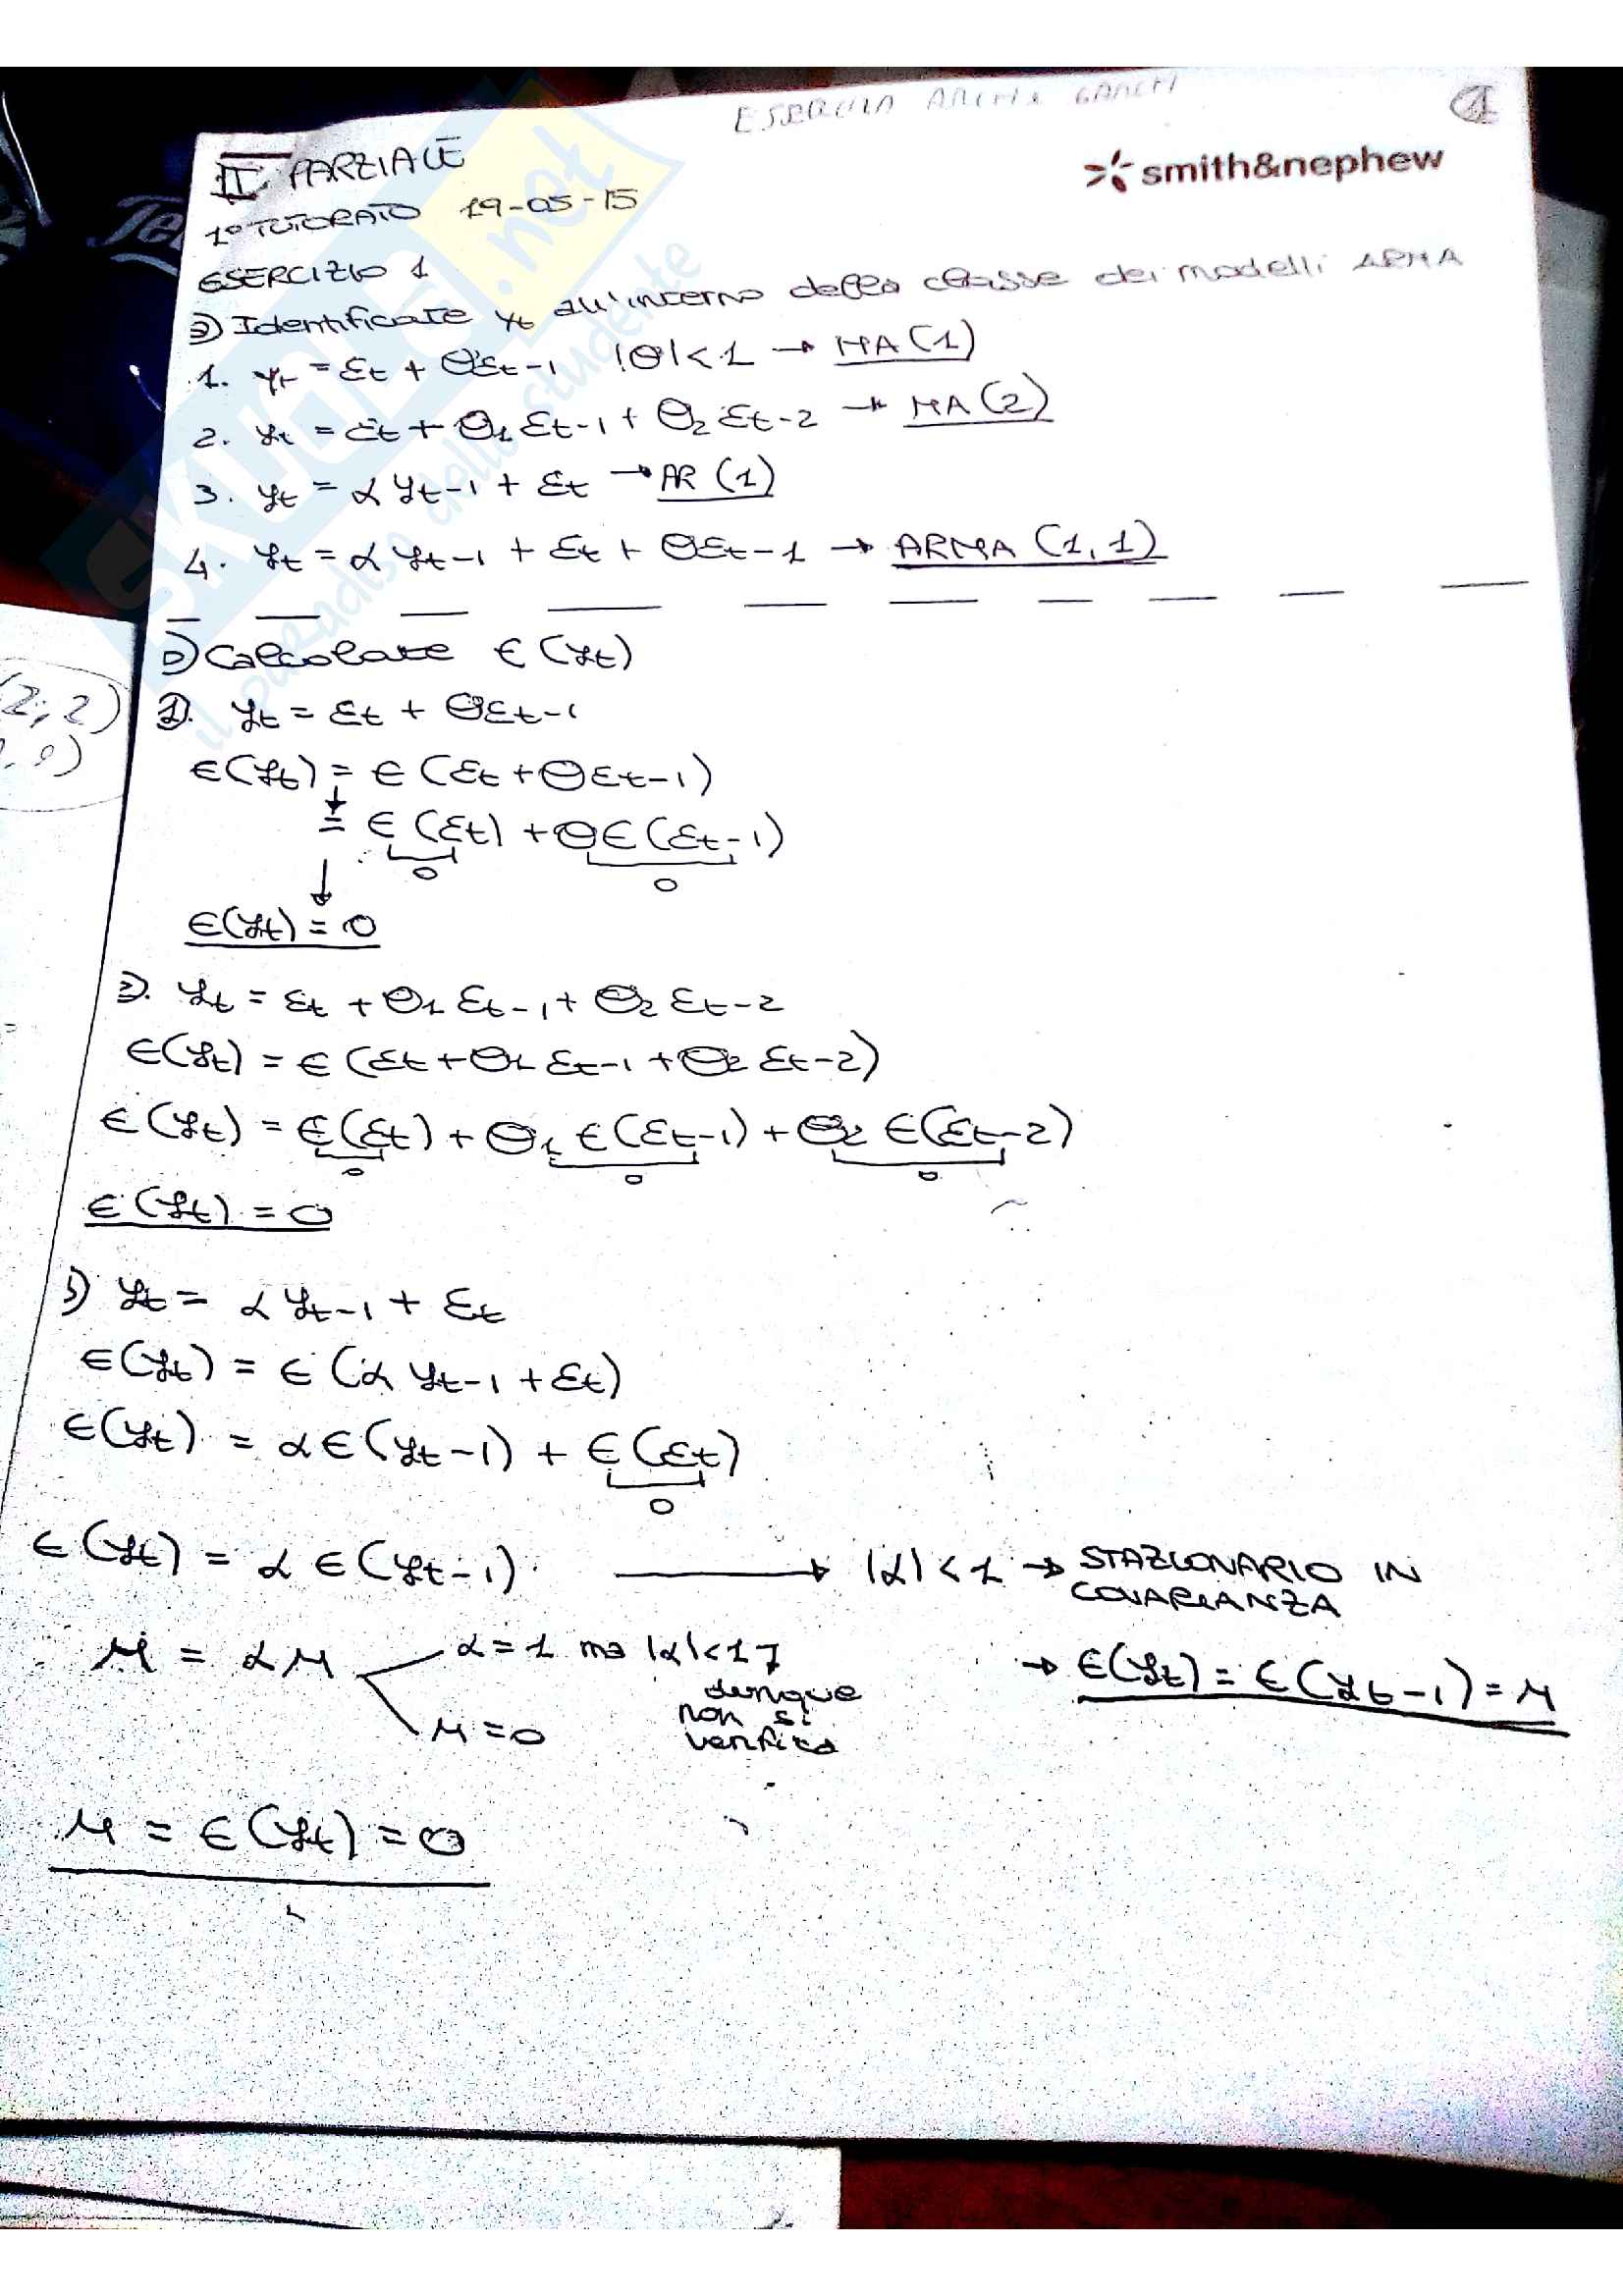 ESERCIZI ARCH & GARCH
1
smith&nephew
II PARZIALE
1° TUTORATO 19-05-15
ESERCIZIO 1
a) Identificate yt all'interno della classe dei modelli ARMA
1. yt = εt + θεt-1 |θ|<1 → MA(1)
2. yt = εt + θ1 εt-1 + θ2 εt-2 → MA(2)
3. yt = α yt-1 + εt → AR(1)
4. yt = α yt-1 + εt + θεt-1 → ARMA (1,1)
b) Calcolate E(yt)
1. yt = εt + θεt-1
E(yt) = E(εt + θεt-1)
= E(εt) + θE(εt-1)
0 0
E(yt) = 0
2. yt = εt + θ1 εt-1 + θ2 εt-2
E(yt) = E(εt + θ1 εt-1 + θ2 εt-2)
E(yt) = E(εt) + θ1 E(εt-1) + θ2 E(εt-2)
0 0 0
E(yt) = 0
3) yt = α yt-1 + εt
E(yt) = E(α yt-1 + εt)
E(yt) = αE(yt-1) + E(εt)
0
E(yt) = α E(yt-1) → |α|<1 → STAZIONARIO IN
COVARIANZA
μ = αμ α=1 ma |α|<1
dunque
non si
verifica
μ=0
→ E(yt) = E(yt-1) = μ
μ = E(yt) = 0
(2,2)
skuola.net
il paradiso dello studente